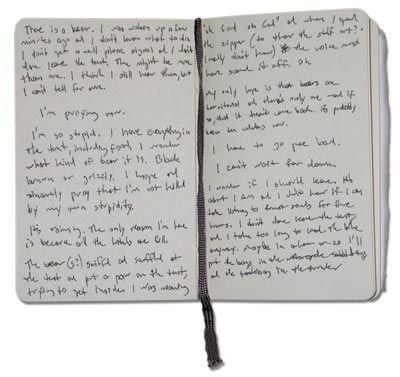 There is a bear. I was woken up a few
minutes ago and I don't know what to do.
I don't get a cell phone signal and I don't
dare leave the tent. There might be more
than one. I think I still hear them, but
I can't tell for sure.
I'm praying now.
I'm so stupid. I have everything in
the tent, including food. I wonder
what kind of bear it is. Black
brown or grizzly. I hope and
sincerely pray that I'm not killed
by my own stupidity.
It's raining. The only reason I'm here
is because all the hotels are full.
The bear(s?) sniffed and snuffled at
the tent and put a paw on the tent,
trying to get inside. I was
Oh God oh God and when I
the zipper (to throw the stuff out?-
I really don't know) the voice must
have scared it off. Oh
My only hope is that bears are
and there's only me and if
so, that it doesn't come back. It's
been minutes now.
I have to go pee bad.
I can't wait for dawn.
I wonder if I should leave. It's
about 1 AM and I don't know if I can
take listening to forest sounds for five
hours. I don't dare leave the tent
and I take too long to load the bike
anyway. Maybe in an hour or so I'll
put the bags in the
and the in the